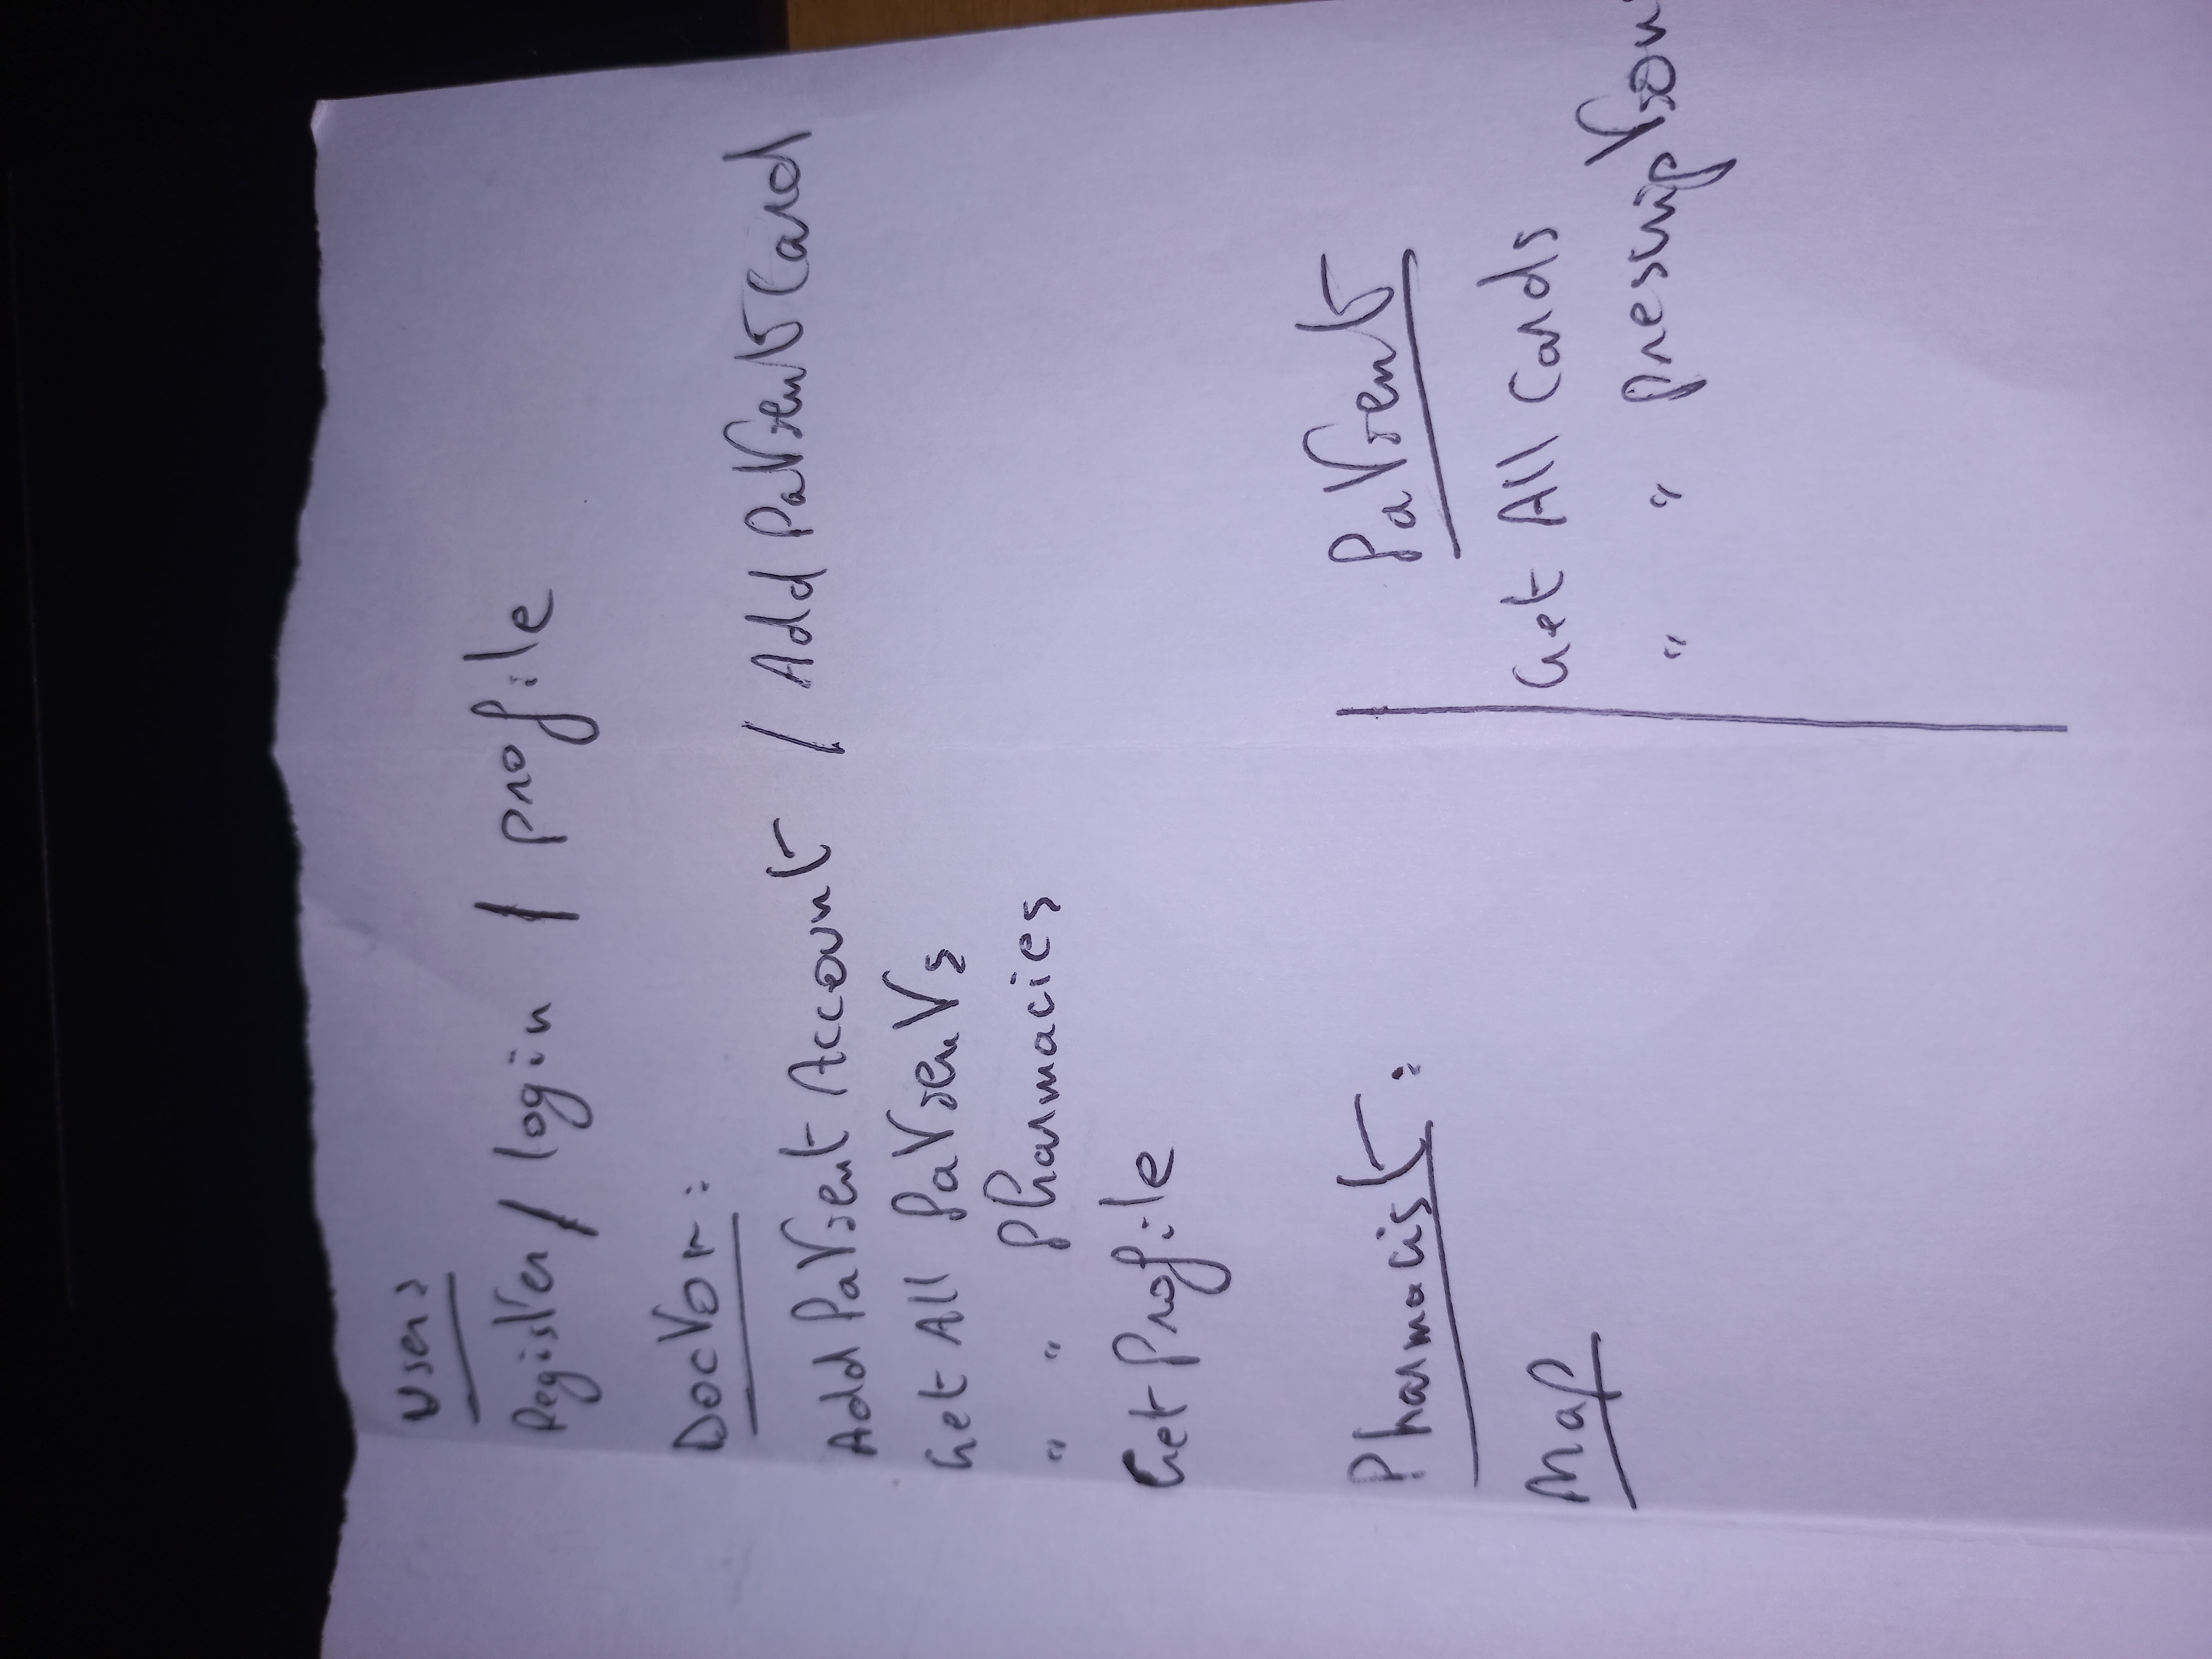 Users
Register / login / profile
Doctor :
Add Patient Account / Add Patient Card
Get All Patients
" " Pharmacies
Get Profile
Pharmacist :
Map
Patient
Get All Cards
" " prescription